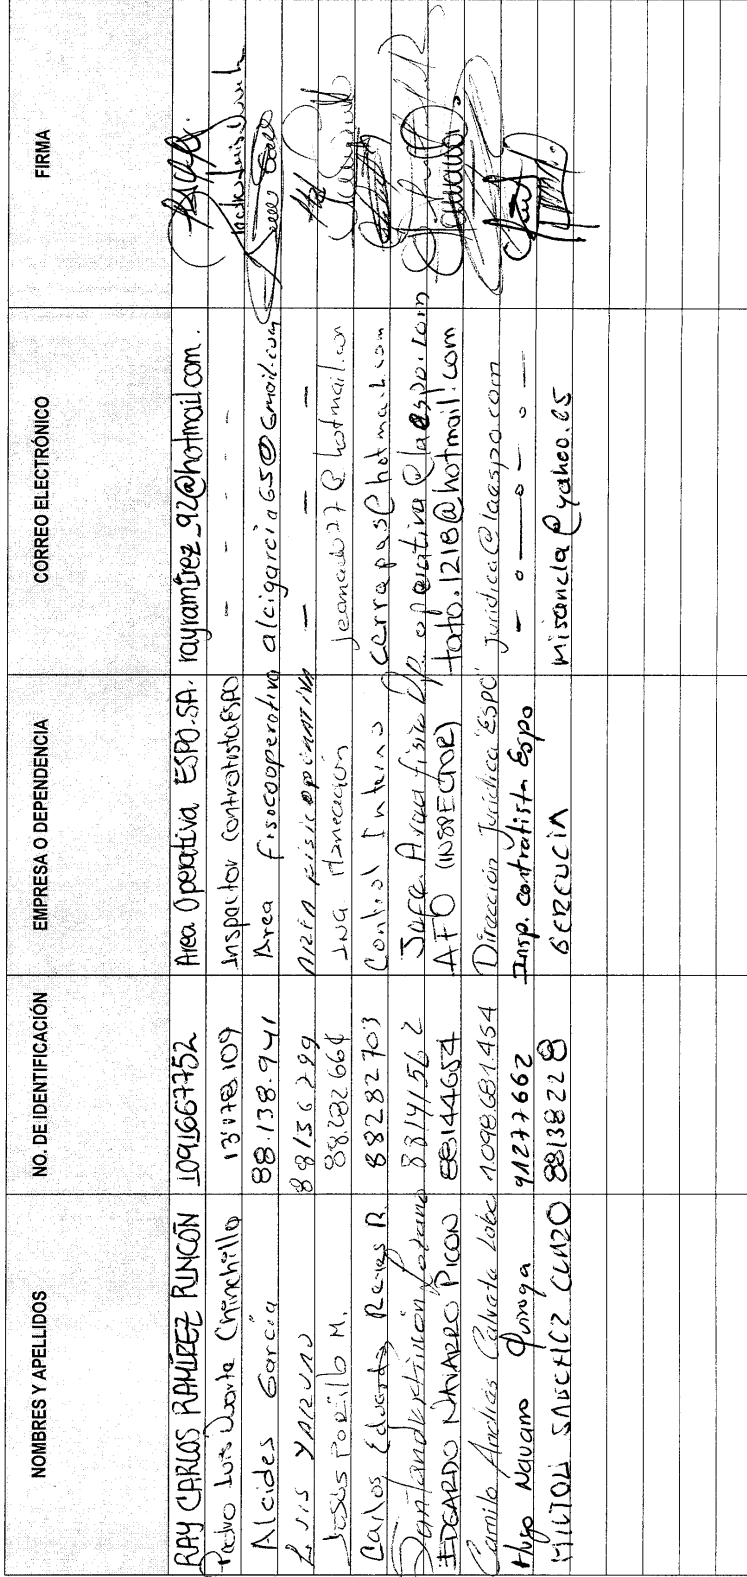 NOMBRES Y APELLIDOS NO. DE IDENTIFICACIÓN EMPRESA O DEPENDENCIA CORREO ELECTRÓNICO FIRMA
RAY CARLOS RAMÍREZ RINCÓN 1091667752 Area Operativa ESPO.SA. rayramirez_92@hotmail.com.
Pedro Luis Duarte Chinchilla 13'178109 Inspector contratista ESPO - - - - -
Alcides García 88.138.941 Area Fisicooperativa alcigarcia65@Gmail.com
Luis YARURO 88156299 AREA FISICOPERATIVA - - - -
Jesús Portillo M. 88.282.664 Ing Planeación @hotmail.com
Carlos Eduardo Reyes R 88282703 Control Interno cerrapas@hotmail.com
88141562 Jefe Area fisico Op. operativa@laespo.com
EDGARDO NAVARRO PICON 88144654 AFO (INSPECTOR) toto.1218@hotmail.com
Camilo Andrés 1098.681.454 Dirección Jurídica ESPO juridica@laespo.com
Hugo Navarro Quiroga 91277662 Insp. contratista Espo - o - o - o -
MILTON SANCHEZ 88138228 GERENCIA misancla@yahoo.es